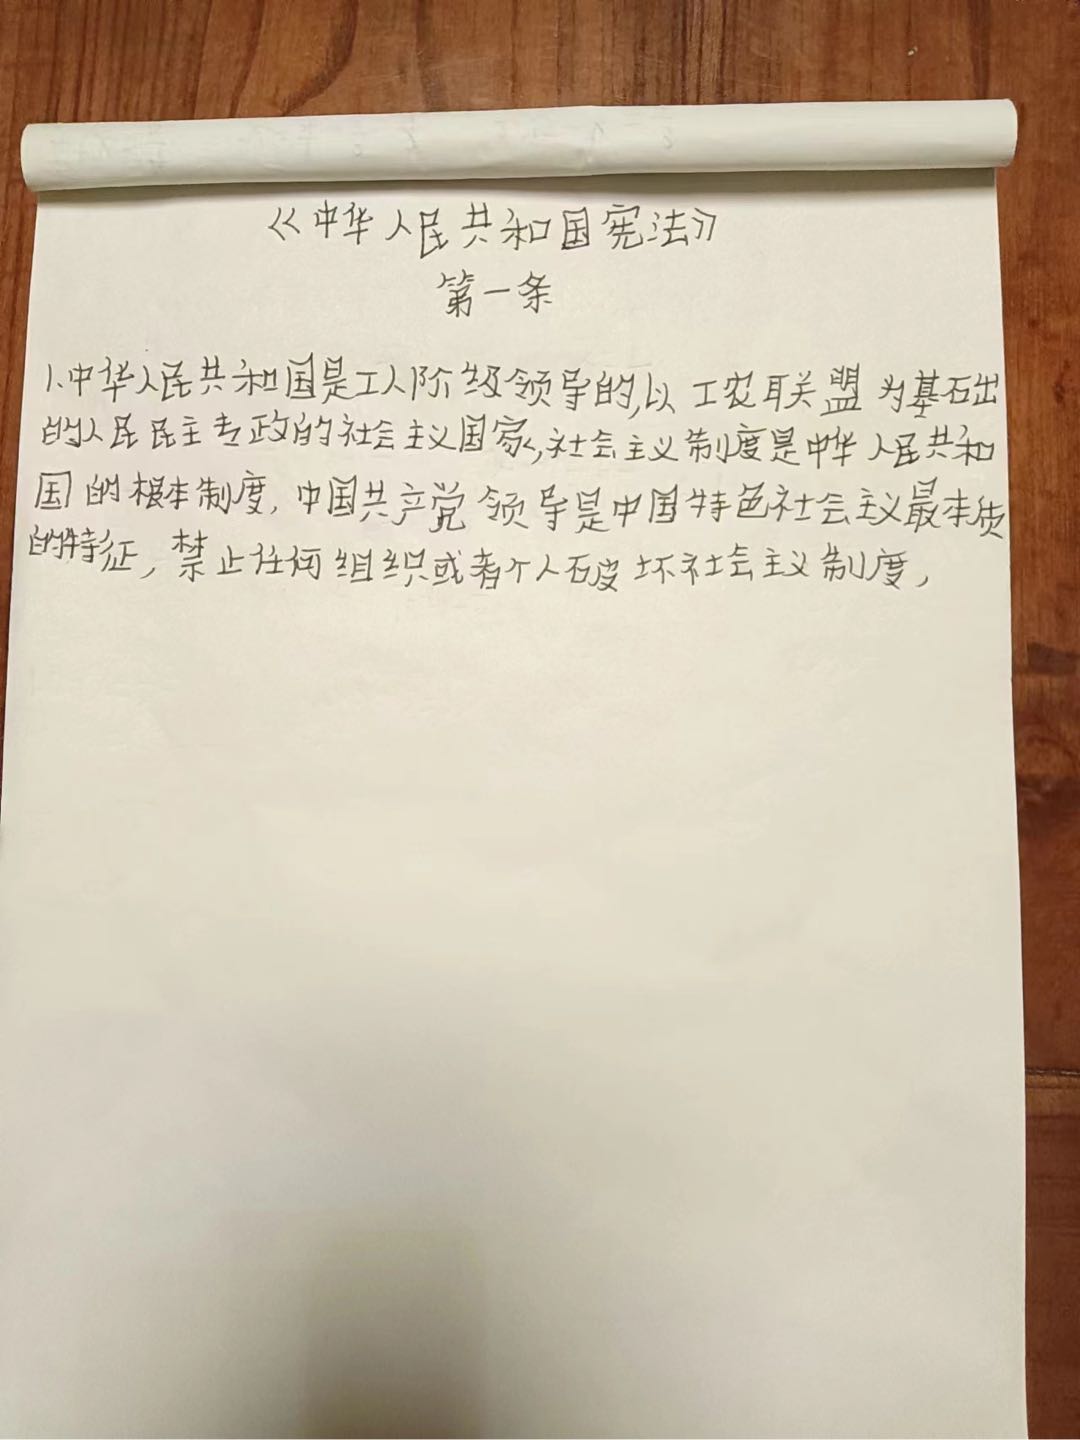 《中华人民共和国宪法》
第一条
1.中华人民共和国是工人阶级领导的,以工农联盟为基础
的人民民主专政的社会主义国家,社会主义制度是中华人民共和
国的根本制度,中国共产党领导是中国特色社会主义最本质
的特征,禁止任何组织或者个人破坏社会主义制度,